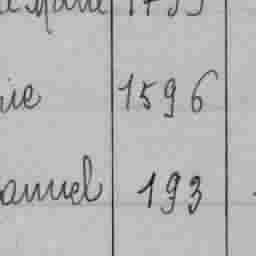 ie 1596
anuel 193